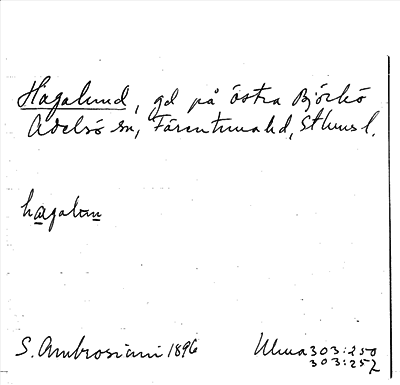 Hagalund, gd på östra Björkö
Adelsö sn, Färentuna hd, Sthlms l.
hagalun
S. Ambrosiani 1896
Ulma 303:250
303:257